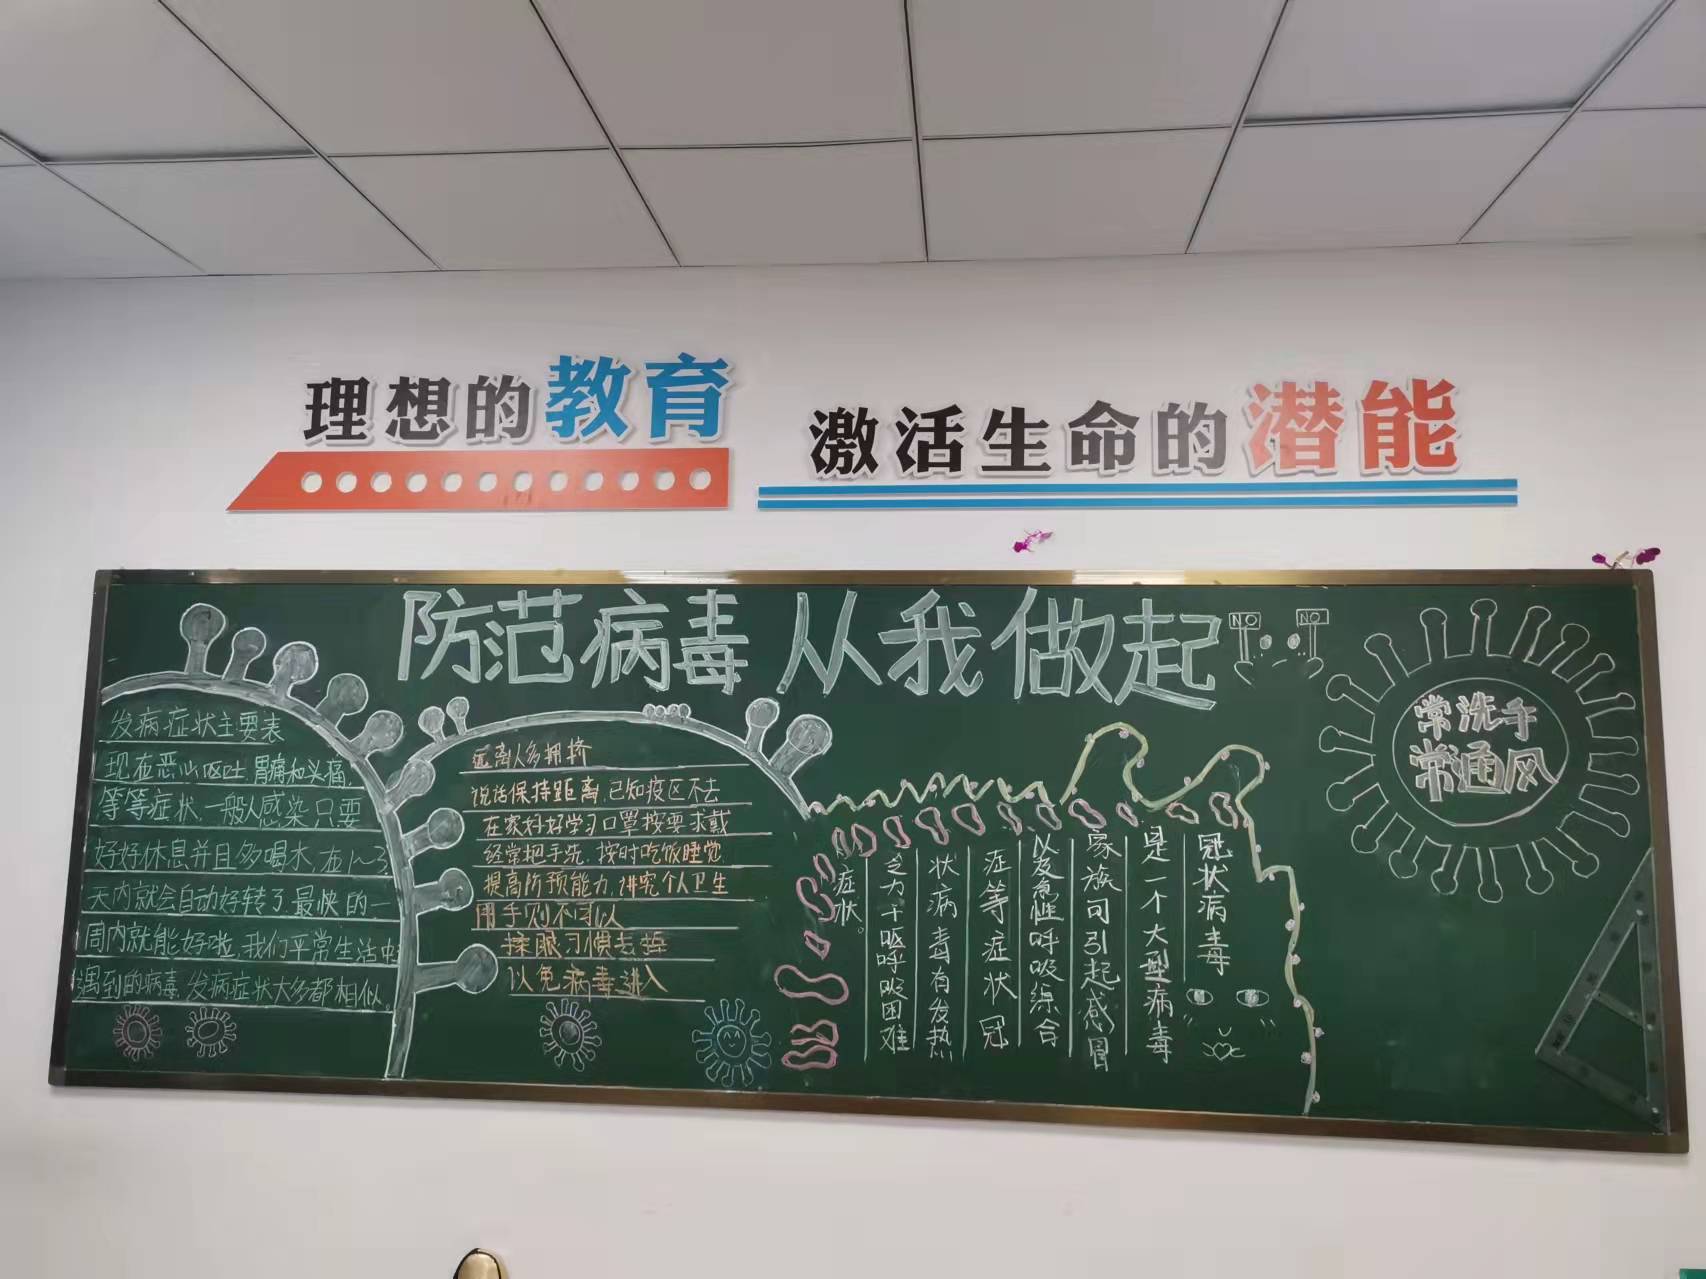 理想的教育
激活生命的潜能
防范病毒从我做起
NO
NO
常洗手
常通风
发病症状主要表
现在恶心呕吐,胃痛和头痛,
等等症状,一般人感染只要
好好休息并且多喝水,在1~3
天内就会自动好转了,最快的一
周内就能好啦,我们平常生活中
遇到的病毒,发病症状大多都相似。
远离人多拥挤
说话保持距离,已知疫区不去
在家好好学习口罩按要求戴
经常把手洗,按时吃饭睡觉
提高防预能力,讲究个人卫生
用手则不可以
揉眼习惯去掉
以免病毒进入
冠状病毒
是一个大型病毒
家族可引起感冒
以及急性呼吸综合
症等症状冠
状病毒有发热
乏力干呕呼吸困难
症状。